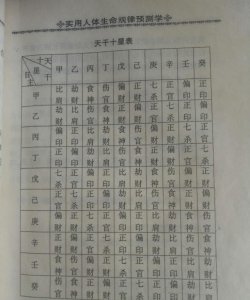 实用人体生命规律预测学
天干十星表
天干 十星 日主 甲 乙 丙 丁 戊 己 庚 辛 壬 癸
甲 比肩 劫财 食神 伤官 偏财 正财 七杀 正官 偏印 正印
乙 劫财 比肩 伤官 食神 正财 偏财 正官 七杀 正印 偏印
丙 偏印 正印 比肩 劫财 食神 伤官 偏财 正财 七杀 正官
丁 正印 偏印 劫财 比肩 伤官 食神 正财 偏财 正官 七杀
戊 七杀 正官 偏印 正印 比肩 劫财 食神 伤官 偏财 正财
己 正官 七杀 正印 偏印 劫财 比肩 伤官 食神 正财 偏财
庚 偏财 正财 七杀 正官 偏印 正印 比肩 劫财 食神 伤官
辛 正财 偏财 正官 七杀 正印 偏印 劫财 比肩 伤官 食神
壬 食神 伤官 偏财 正财 七杀 正官 偏印 正印 比肩 劫财
癸